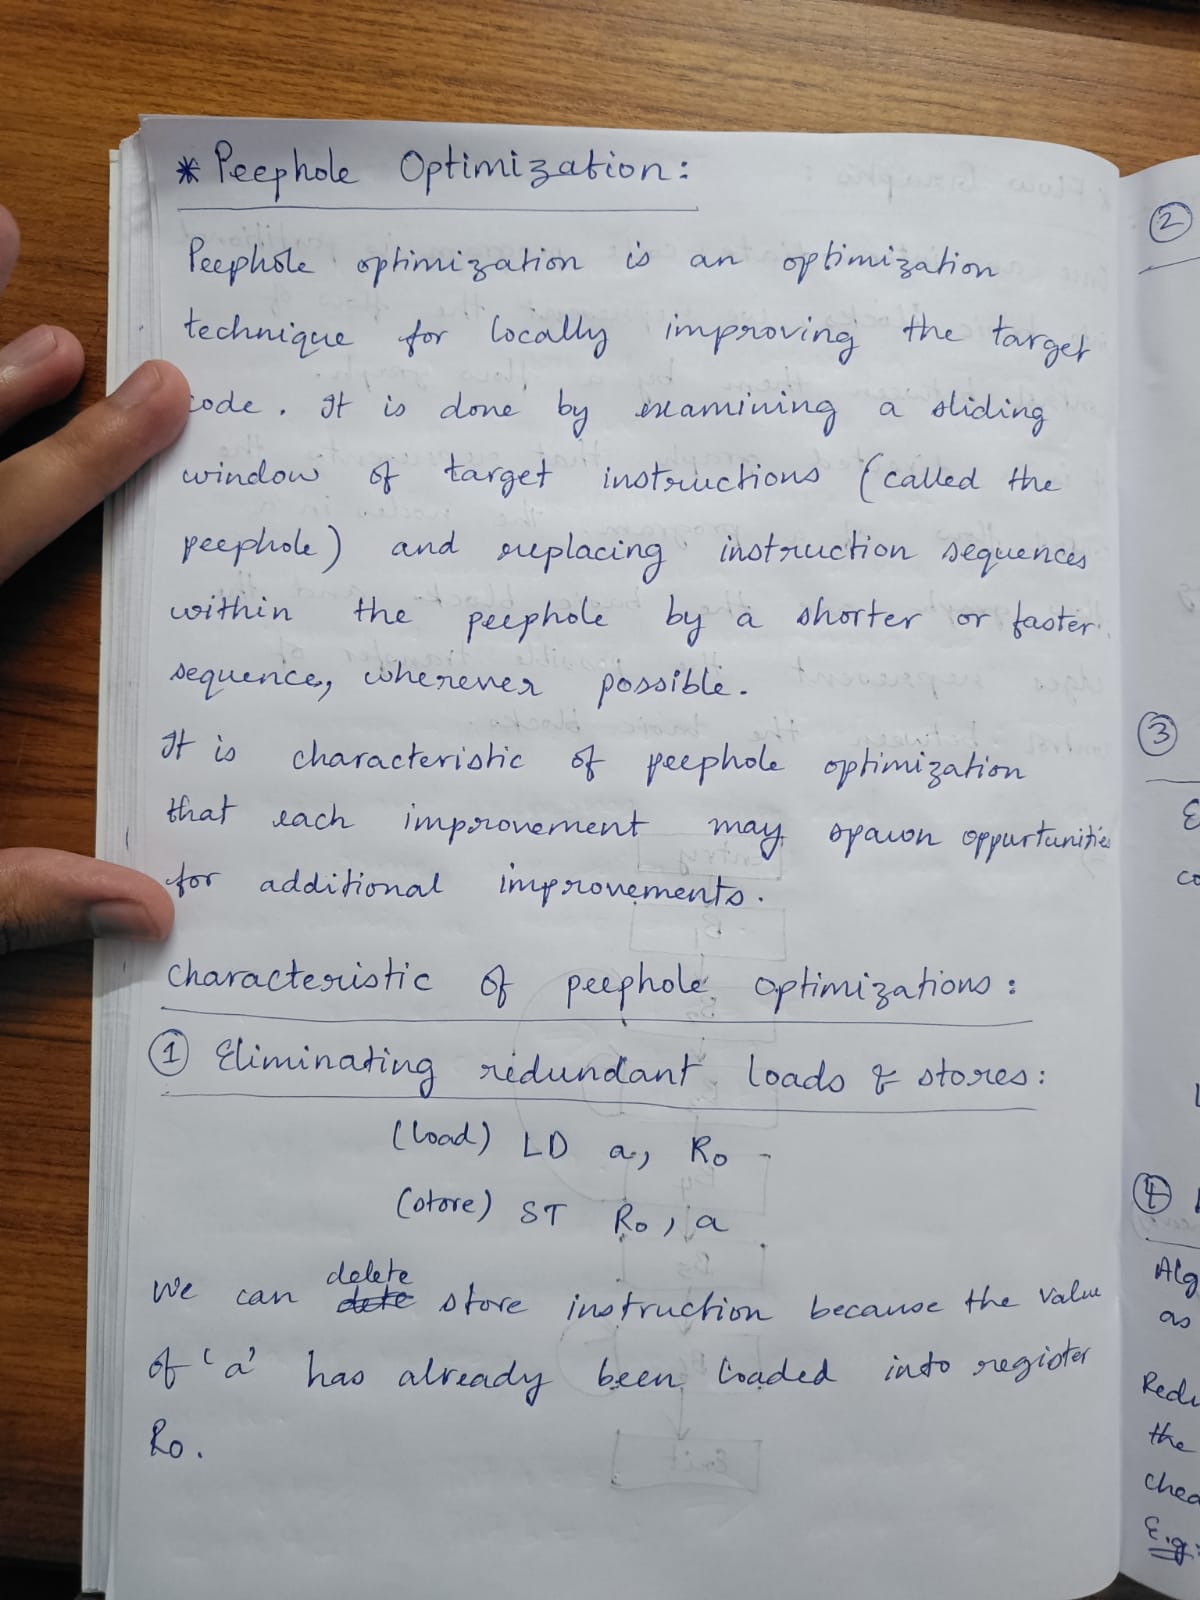 * Peephole Optimization:
Peephole optimization is an optimization
technique for locally improving the target
code. It is done by examining a sliding
window of target instructions (called the
peephole) and replacing instruction sequences
within the peephole by a shorter or faster
sequence, wherever possible.
It is characteristic of peephole optimization
that each improvement may spawn oppurtunities
for additional improvements.
Characteristic of peephole Optimizations:
① Eliminating redundant loads & stores:
(load) LD a, R0
(store) ST R0, a
We can delete store instruction because the value
of 'a' has already been loaded into register
R0.
②
③
E
co
④
Alg
as
Redu
the
chea
E.g: